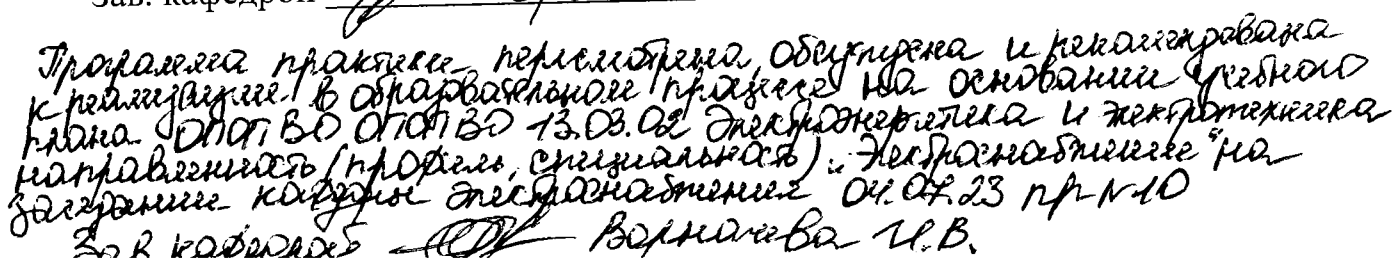 Зав. кафедрой
Программа практики пересмотрена, обсуждена и рекомендована
к реализации в образовательном процессе на основании учебного
плана ОПОП ВО ОПОП ВО 13.03.02 Электроэнергетика и электротехника
направленность (профиль, специальность) „Электроснабжение" на
заседании кафедры электроснабжения 04.07.23 пр N10
Зав кафедрой Ворначева И.В.